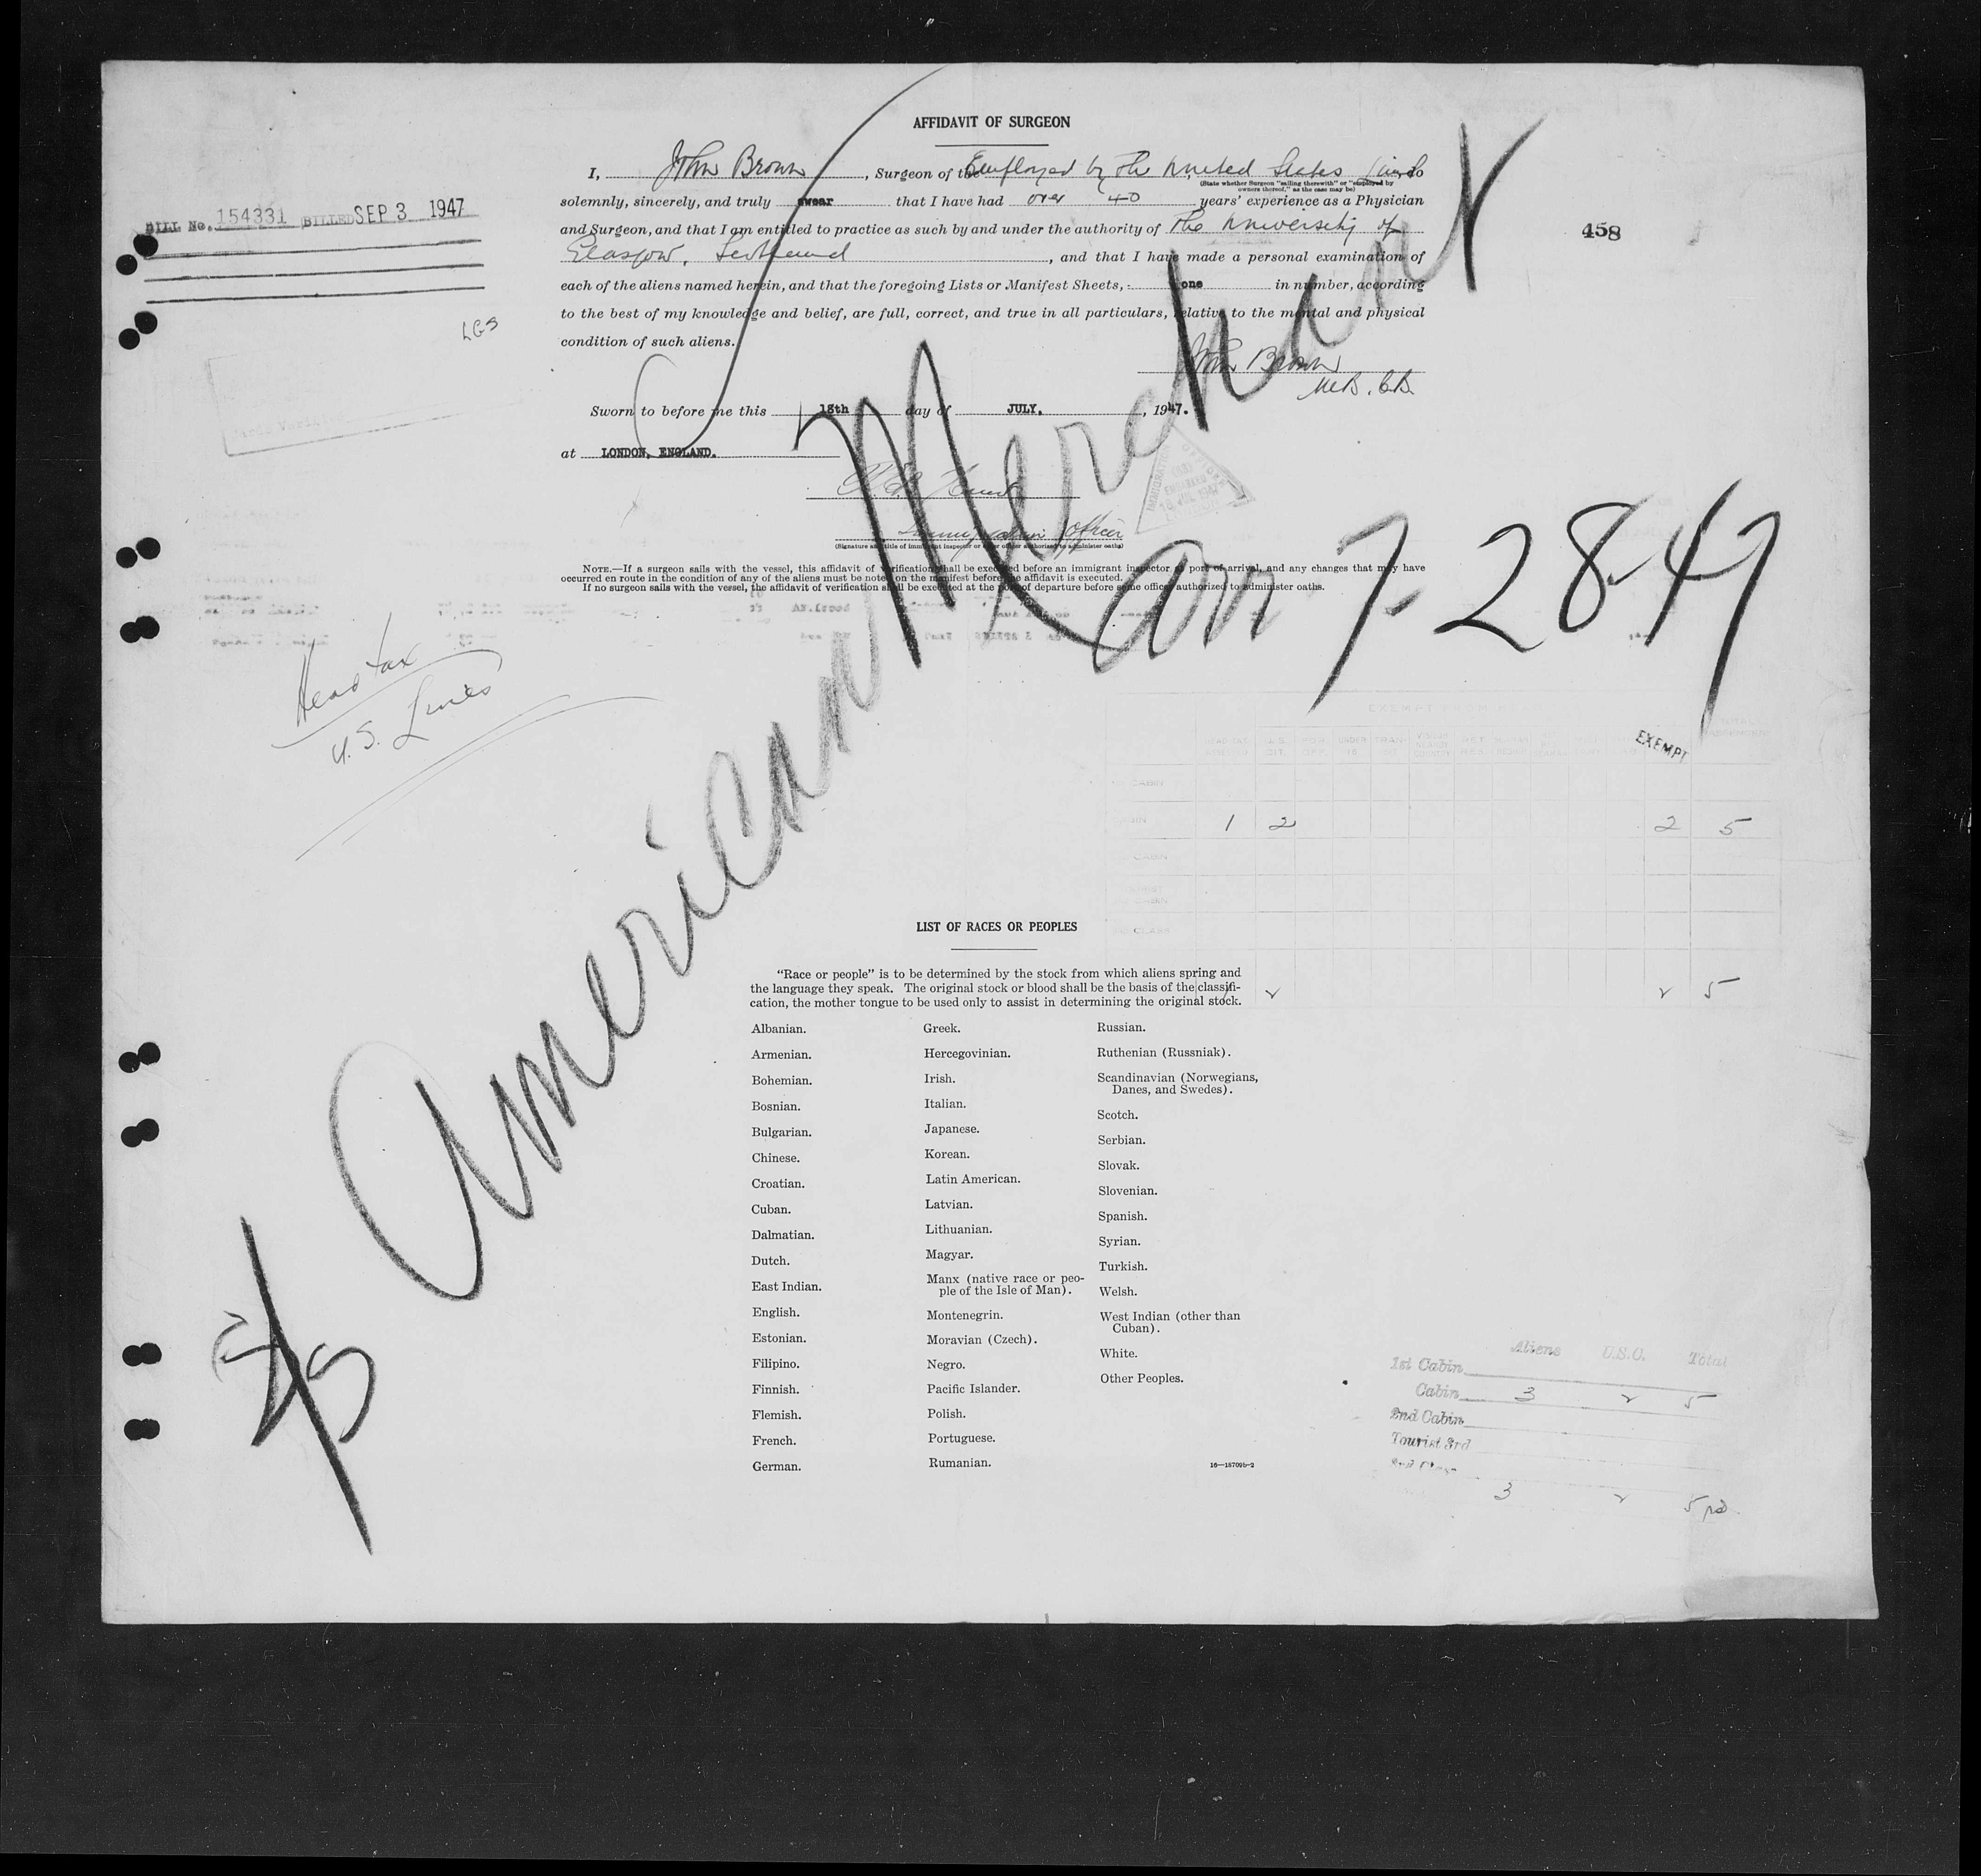 AFFIDAVIT OF SURGEON
I, John Brown, Surgeon of the Employed by the United States Lines do
(State whether Surgeon "sailing therewith" or "employed by owners thereof," as the case may be)
solemnly, sincerely, and truly swear that I have had over 40 years' experience as a Physician
and Surgeon, and that I am entitled to practice as such by and under the authority of The University of
Glasgow, Scotland, and that I have made a personal examination of
each of the aliens named herein, and that the foregoing Lists or Manifest Sheets, one in number, according
to the best of my knowledge and belief, are full, correct, and true in all particulars, relative to the mental and physical
condition of such aliens.
John Brown
M.B. Ch.B.
Sworn to before me this 18th day of JULY, 1947.
at LONDON, ENGLAND.
Immigration Officer
(Signature and title of immigrant inspector or other officer authorized to administer oaths)
NOTE.—If a surgeon sails with the vessel, this affidavit of verification shall be executed before an immigrant inspector at port of arrival, and any changes that may have
occurred en route in the condition of any of the aliens must be noted on the manifest before the affidavit is executed.
If no surgeon sails with the vessel, the affidavit of verification shall be executed at the port of departure before some officer authorized to administer oaths.
BILL No. 154331 BILLED SEP 3 1947
LGS
458
S/S American Merchant
arr 7-28-47
Head tax
U.S. Lines
EXEMPT
CABIN
1 2 2 5
2 5
LIST OF RACES OR PEOPLES
"Race or people" is to be determined by the stock from which aliens spring and
the language they speak. The original stock or blood shall be the basis of the classifi-
cation, the mother tongue to be used only to assist in determining the original stock.
Albanian.
Armenian.
Bohemian.
Bosnian.
Bulgarian.
Chinese.
Croatian.
Cuban.
Dalmatian.
Dutch.
East Indian.
English.
Estonian.
Filipino.
Finnish.
Flemish.
French.
German.
Greek.
Hercegovinian.
Irish.
Italian.
Japanese.
Korean.
Latin American.
Latvian.
Lithuanian.
Magyar.
Manx (native race or peo-
ple of the Isle of Man).
Montenegrin.
Moravian (Czech).
Negro.
Pacific Islander.
Polish.
Portuguese.
Rumanian.
Russian.
Ruthenian (Russniak).
Scandinavian (Norwegians,
Danes, and Swedes).
Scotch.
Serbian.
Slovak.
Slovenian.
Spanish.
Syrian.
Turkish.
Welsh.
West Indian (other than
Cuban).
White.
Other Peoples.
16—18709b-2
Aliens U.S.C. Total
1st Cabin
Cabin 3 2 5
2nd Cabin
Tourist 3rd
3 2 5